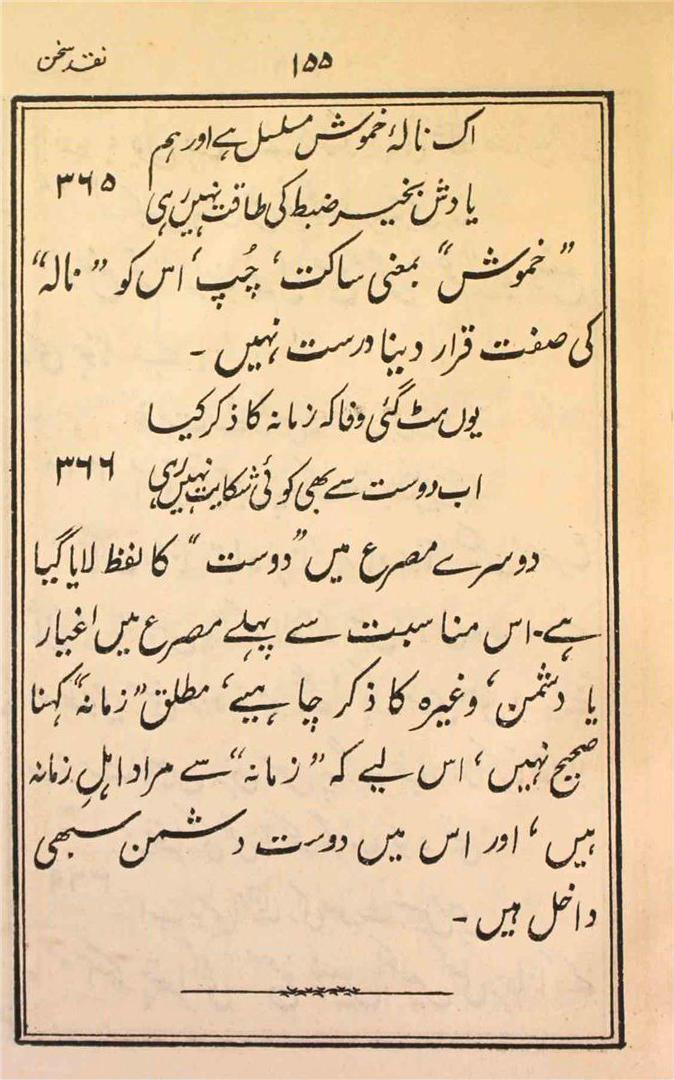 نقد سخن
۱۵۵
اک نالۂ خموش مسلسل ہے اور ہم
یادش بخیر ضبط کی طاقت نہیں رہی ۳۶۵
”خموش“ بمعنی ساکت، چُپ، اس کو ”نالہ“
کی صفت قرار دینا درست نہیں ۔
یوں مٹ گئی وفا کہ زمانہ کا ذکر کیا
اب دوست سے بھی کوئی شکایت نہیں رہی ۳۶۶
دوسرے مصرع میں ”دوست“ کا لفظ لایا گیا
ہے۔ اس مناسبت سے پہلے مصرع میں اغیار
یا دشمن، وغیرہ کا ذکر چاہیے، مطلق ”زمانہ“ کہنا
صحیح نہیں، اس لیے کہ ”زمانہ“ سے مراد اہلِ زمانہ
ہیں، اور اس میں دوست دشمن سبھی
داخل ہیں ۔